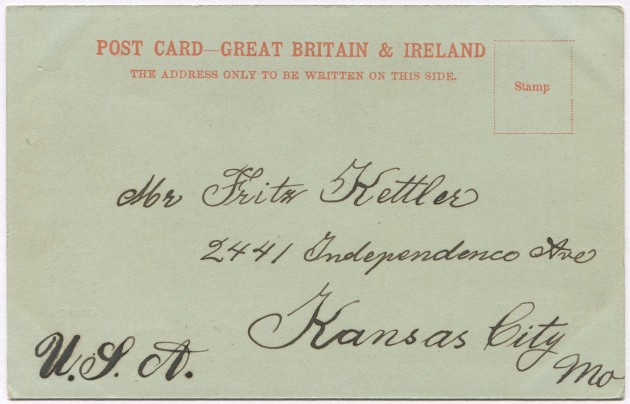 POST CARD—GREAT BRITAIN & IRELAND
THE ADDRESS ONLY TO BE WRITTEN ON THIS SIDE.
Stamp
Mr Fritz Kettler
2441 Independence Ave
Kansas City
Mo
U.S.A.